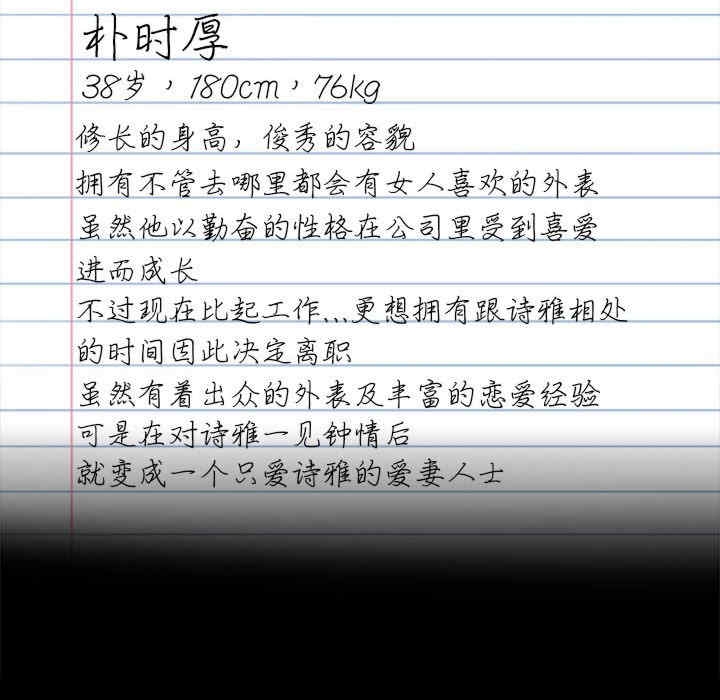 朴时厚
38岁，180cm，76kg
修长的身高，俊秀的容貌
拥有不管去哪里都会有女人喜欢的外表
虽然他以勤奋的性格在公司里受到喜爱
进而成长
不过现在比起工作...更想拥有跟诗雅相处
的时间因此决定离职
虽然有着出众的外表及丰富的恋爱经验
可是在对诗雅一见钟情后
就变成一个只爱诗雅的爱妻人士